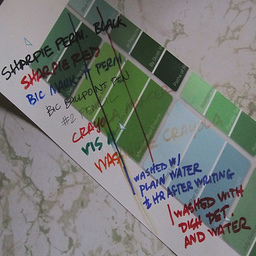 SHARPIE PERM. BLACK
SHARPIE RED
BIC MARK-IT PERM
BIC BALLPOINT PEN
#2
CRAYOLA
VIS
WAS
WASHED W/
PLAIN WATER
½ HR AFTER WRITING
WASHED WITH
DISH DET.
AND WATER